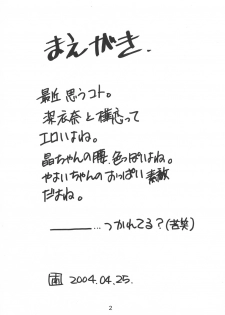 まえがき.
最近思うコト。
梨衣奈と撲恋って
エロいよね。
晶ちゃんの腰、色っぽいよね。
やよいちゃんのおっぱい素敵
だよね。
――…つかれてる?(苦笑)
2004.04.25.
2